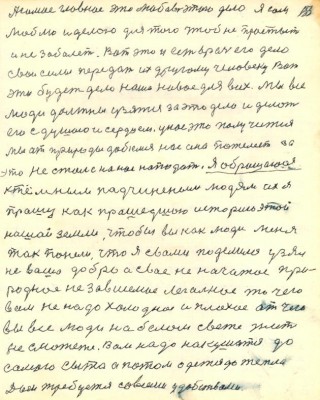 А самое главное это та любовь этого дело я сам
люблю и делою для того чтоб не простыть
и не заболеть. Вот это и есть врач его дело
свои силы передать их другому человеку Вот
это будет дело наше новое для всех. Мы все
люди должны взятся за это дело и делать
его с душою и сердцем, у нас это получится
мы от природы добьемся нас она пожелеет за
это не станет на нас нападать. Я обращаюся
к тёмным падчиненым людям и я
прашу как прошедшою историю этой
нашай земли, чтобы вы как люди меня
так поняли, что я с вами поделился узял
не ваше добро а свае не начатое при-
родное не зависемае легалное то чего
вам не надо холодное и плохое от чего
вы все люди на белом свете жить
не сможете. Вам надо накушатя до
самого сыта а потом одется до тепла
Дом требуется совсеми удобствами